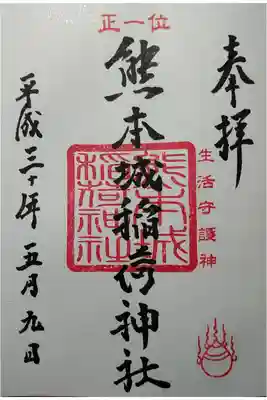 奉拝
生活守護神
正一位
熊本城稲荷神社
熊本城稲荷神社
平成三十年五月九日